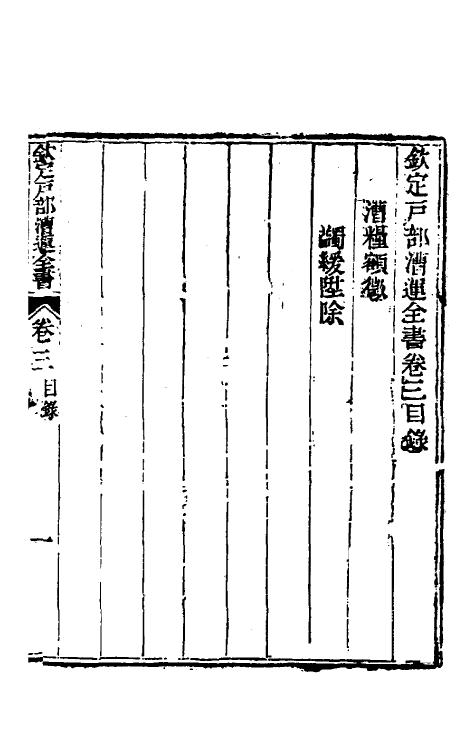 欽定戸部漕運全書卷三目錄
漕糧額徵
蠲緩陞除
欽定戸部漕運全書
卷三
目錄
一